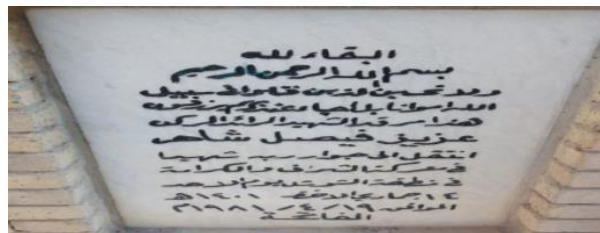 البقاء لله
بسم الله الرحمن الرحيم
ولا تحسبن الذين قتلوا في سبيل
الله امواتا بل أحياء عند ربهم يرزقون
هنا يرقد الشهيد
عزيز فيصل شاهر
انتقل الى جوار ربه شهيدا
في معركة الشرف والكرامة
في يوم الاحد
١٤٠١ هـ
الموافق ١٩ / ٤ / ١٩٨١ م
الفاتحة